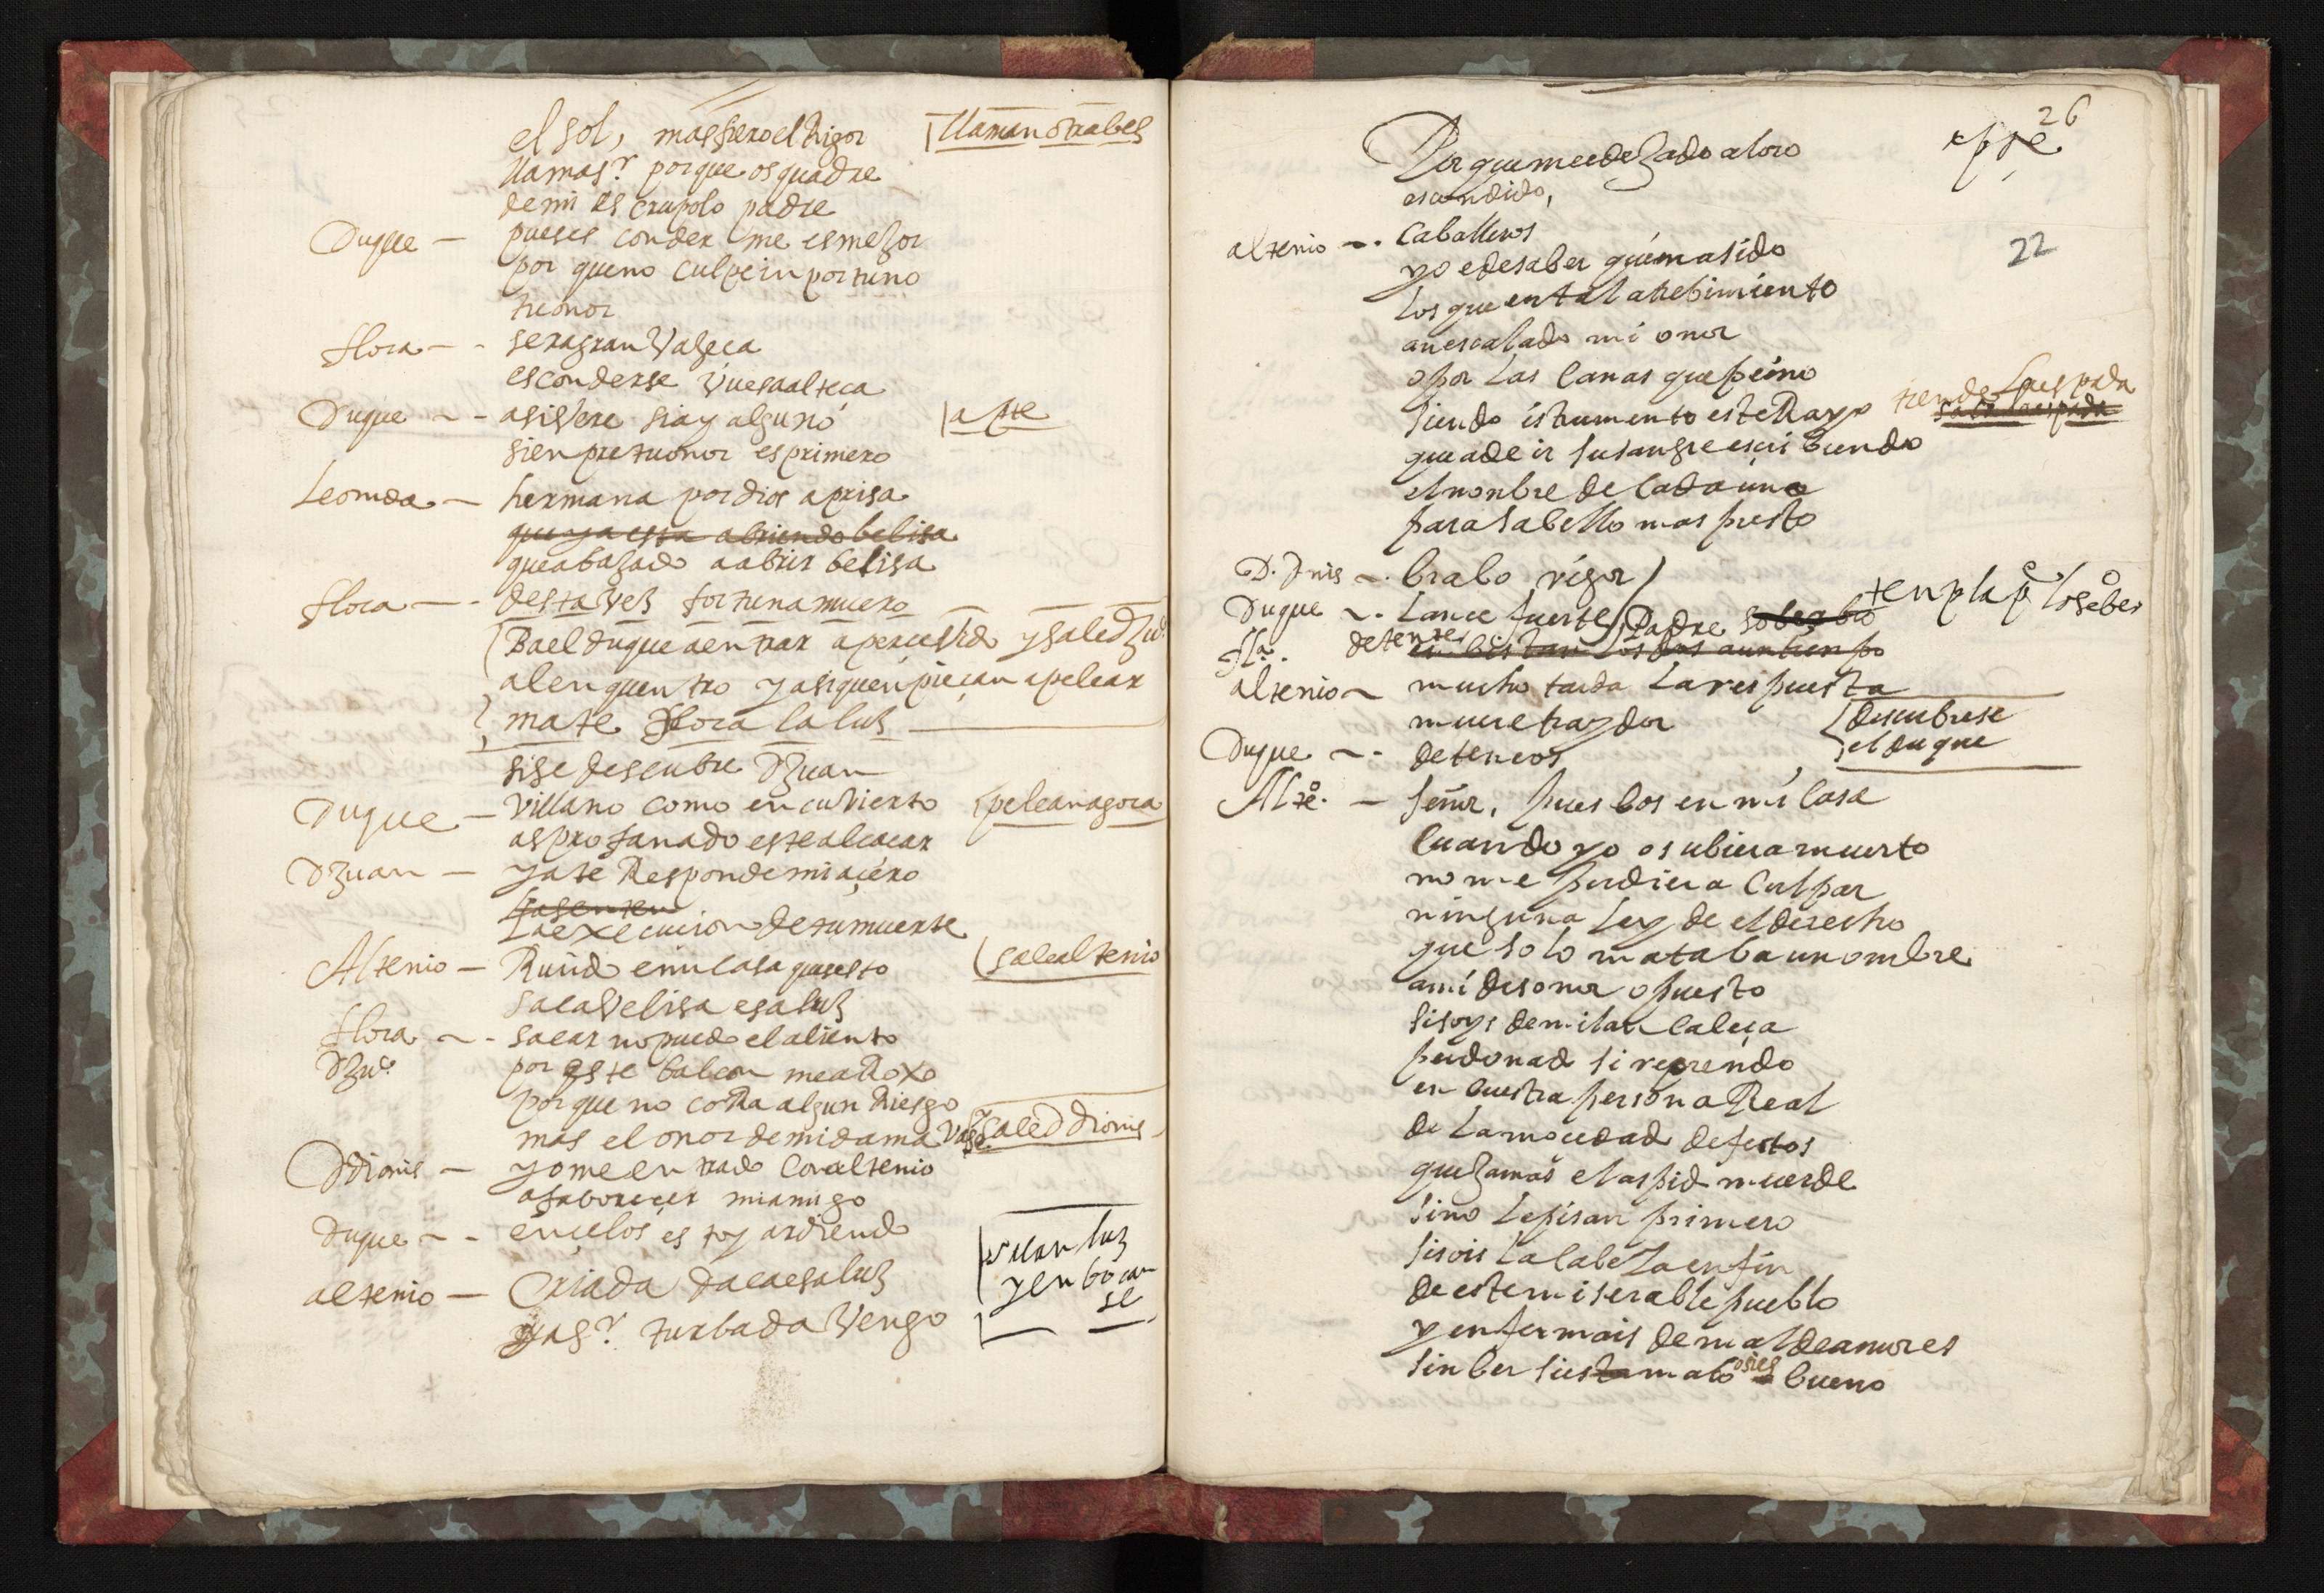 el sol, mas fiero el Rigor
llaman otrabes
llamas? porque os quadre
de mi escrupolo padre
Duque — pues es conder me es mejor
por que no culpe inportuno
tu onor
flora — sera gran vajeca
esconderse vuesa alteca
Duque — asi vere si ay alguno
apte
sienpre tu onor es primero
Leonida — hermana por dios aprisa
que ya esta abriendo belisa
que abajado a abrir belisa
flora — desta vez fortuna muero
Ba el duque a entrar apercevido y sale D Ju.
al enquentro y asi quenpieçan a pelear
mate flora la luz
si se descubre D Juan
Duque — villano como encuvierto
pelean agora
as profanado este alcacar
D Juan — ya te Responde mi açero
la execucion de tu muerte
Altenio — Ruido en mi casa ques esto
sale altenio
saca velisa esa luz
flora — sacar no puedo el aliento
D Ju.o por este balcon me aRoxo
por que no coRa algun Riesgo
mas el onor de mi dama vase
y sale d dionis
D dionis — yo me en trado con altenio
a faborecer mi amigo
Duque — en çelos es toy ardiendo
altenio — Criada daca esa luz
sacan luz
y enbocan
se
yas? turbada vengo
26
apte
Por que me e dejado a loro
escondido,
22
altenio — Caballeros
yo e de saber quien a sido
los que en tal atrebimiento
an escalado mi onor
o por las canas que peino
siendo istrumento este Rayo
tiende la espada
saca la espada
que a de ir su sangre escribiendo
el nonbre de cada uno
para sabello mas presto
D. Dnis — brabo rigor
Duque — Lance fuerte
Fla. detente Padre soberbio
en bistan los dos a un tienpo
altenio — mucho tarda la respuesta
muere traydor
descubrese
el duque
Duque — deteneos
Alte.o — señor, pues bos en mi casa
Cuando yo os ubiera muerto
no me pudiera culpar
ninguna ley de el derecho
que solo mataba un ombre
a mi desonor opuesto
si soys de milan cabeça
perdonad si reprendo
en buestra persona Real
de la mocedad defectos
que jamas el aspid muerde
sino le pisan primero
si sois la cabeza en fin
de este miserable pueblo
y enfermais de mal de amores
sin ber si es malo o si es bueno